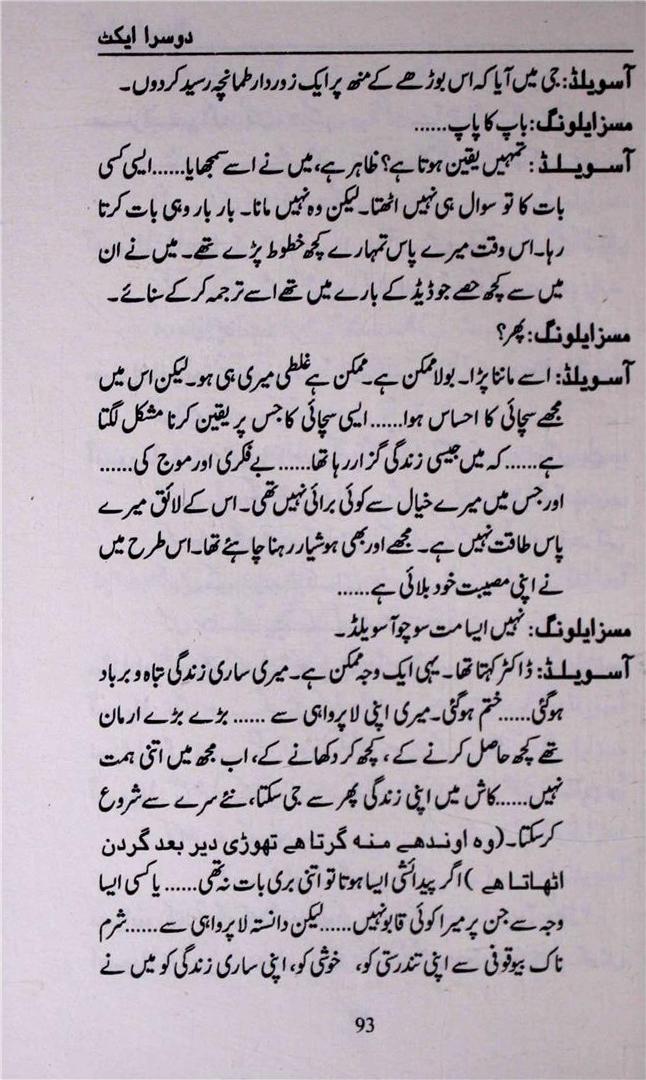 دوسرا ایکٹ
آسویلڈ: جی میں آیا کہ اس بوڑھے کے منھ پر ایک زوردار طمانچہ رسید کر دوں۔
مسز ایلونگ: باپ کا پاپ......
آسویلڈ: تمہیں یقین ہوتا ہے؟ ظاہر ہے، میں نے اسے سمجھایا...... ایسی کسی
بات کا تو سوال ہی نہیں اٹھتا۔ لیکن وہ نہیں مانا۔ بار بار وہی بات کرتا
رہا۔ اس وقت میرے پاس تمہارے کچھ خطوط پڑے تھے۔ میں نے ان
میں سے کچھ حصے جو ڈیڈ کے بارے میں تھے اسے ترجمہ کر کے سنائے۔
مسز ایلونگ: پھر؟
آسویلڈ: اسے ماننا پڑا۔ بولا ممکن ہے۔ ممکن ہے غلطی میری ہی ہو۔ لیکن اس میں
مجھے سچائی کا احساس ہوا...... ایسی سچائی کا جس پر یقین کرنا مشکل لگتا
ہے...... کہ میں جیسی زندگی گزار رہا تھا...... بے فکری اور موج کی......
اور جس میں میرے خیال سے کوئی برائی نہیں تھی۔ اس کے لائق میرے
پاس طاقت نہیں ہے۔ مجھے اور بھی ہوشیار رہنا چاہئے تھا۔ اس طرح میں
نے اپنی مصیبت خود بلائی ہے......
مسز ایلونگ: نہیں ایسا مت سوچو آسویلڈ۔
آسویلڈ: ڈاکٹر کہتا تھا۔ یہی ایک وجہ ممکن ہے۔ میری ساری زندگی تباہ و برباد
ہوگئی...... ختم ہوگئی۔ میری اپنی لا پرواہی سے ...... بڑے بڑے ارمان
تھے کچھ حاصل کرنے کے ، کچھ کر دکھانے کے، اب مجھ میں اتنی ہمت
نہیں...... کاش میں اپنی زندگی پھر سے جی سکتا، نئے سرے سے شروع
کر سکتا۔ (وہ اوندھے منہ گرتا ہے تھوڑی دیر بعد گردن
اٹھاتا ہے ) اگر پیدائشی ایسا ہوتا تو اتنی بری بات نہ تھی...... یا کسی ایسا
وجہ سے جن پر میرا کوئی قابو نہیں...... لیکن دانستہ لا پرواہی سے...... شرم
ناک بیوقوفی سے اپنی تندرستی کو، خوشی کو، اپنی ساری زندگی کو میں نے
93